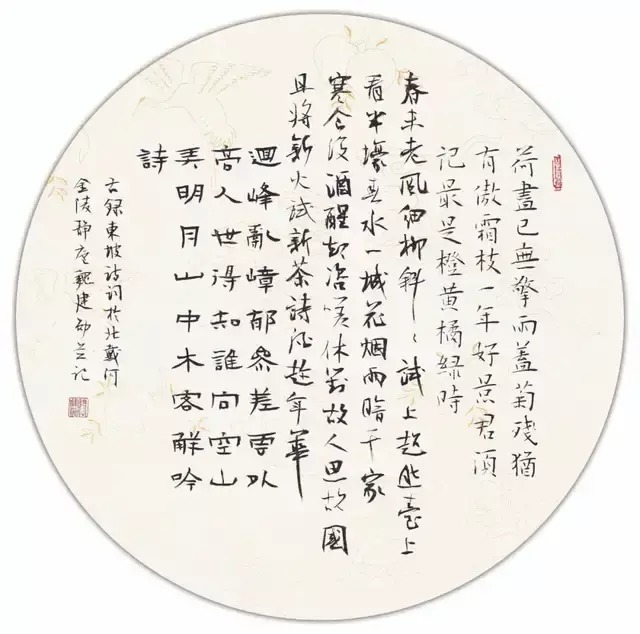 荷盡已無擎雨蓋菊殘猶
有傲霜枝一年好景君須
記最是橙黃橘綠時
春未老風細柳斜〻試上超然臺上
看半壕春水一城花烟雨暗千家
寒食後酒醒却咨嗟休對故人思故國
且將新火試新茶詩酒趁年華
迴峰亂嶂郁參差雲外
高人世得知誰向空山
弄明月山中木客解吟
詩
古録東坡詩詞於北戴河
金陵静庵建邵并記